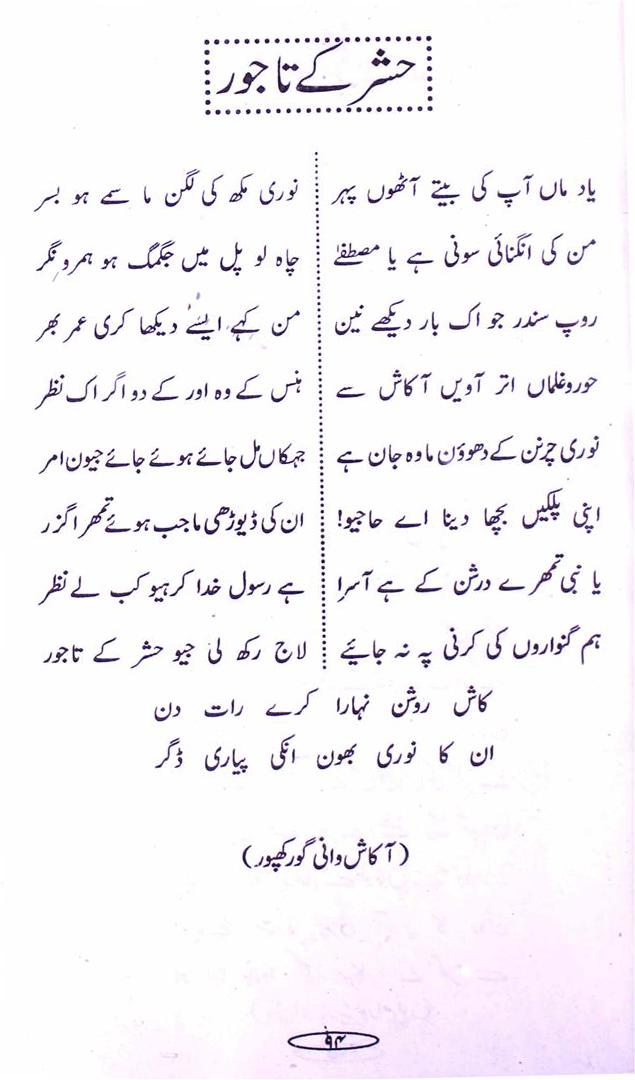 حشر کے تاجور
یاد ماں آپ کی بیتے آٹھوں پہر نوری مکھ کی لگن ما سمے ہو بسر
من کی انگنائی سونی ہے یا مصطفےٰ چاہ لو پل میں جگمگ ہو ہمرو نگر
روپ سندر جو اک بار دیکھے نین من کہے ایسے دیکھا کری عمر بھر
حور و غلماں اتر آویں آکاش سے ہنس کے وہ اور کے دو اگر اک نظر
نوری چرنن کے دھوؤن ما وہ جان ہے جہکاں مل جائے ہوئے جائے جیون امر
اپنی پلکیں بچھا دینا اے حاجیو! ان کی ڈیوڑھی ما جب ہوئے تمھرا گزر
یا نبی تمھرے درشن کے ہے آسرا ہے رسول خدا کر ہیو کب لے نظر
ہم گنواروں کی کرنی پہ نہ جائیے لاج رکھ لی جیو حشر کے تاجور
کاش روشن نہارا کرے رات دن
ان کا نوری بھون انکی پیاری ڈگر
(آکاش وانی گورکھپور)
۹۴